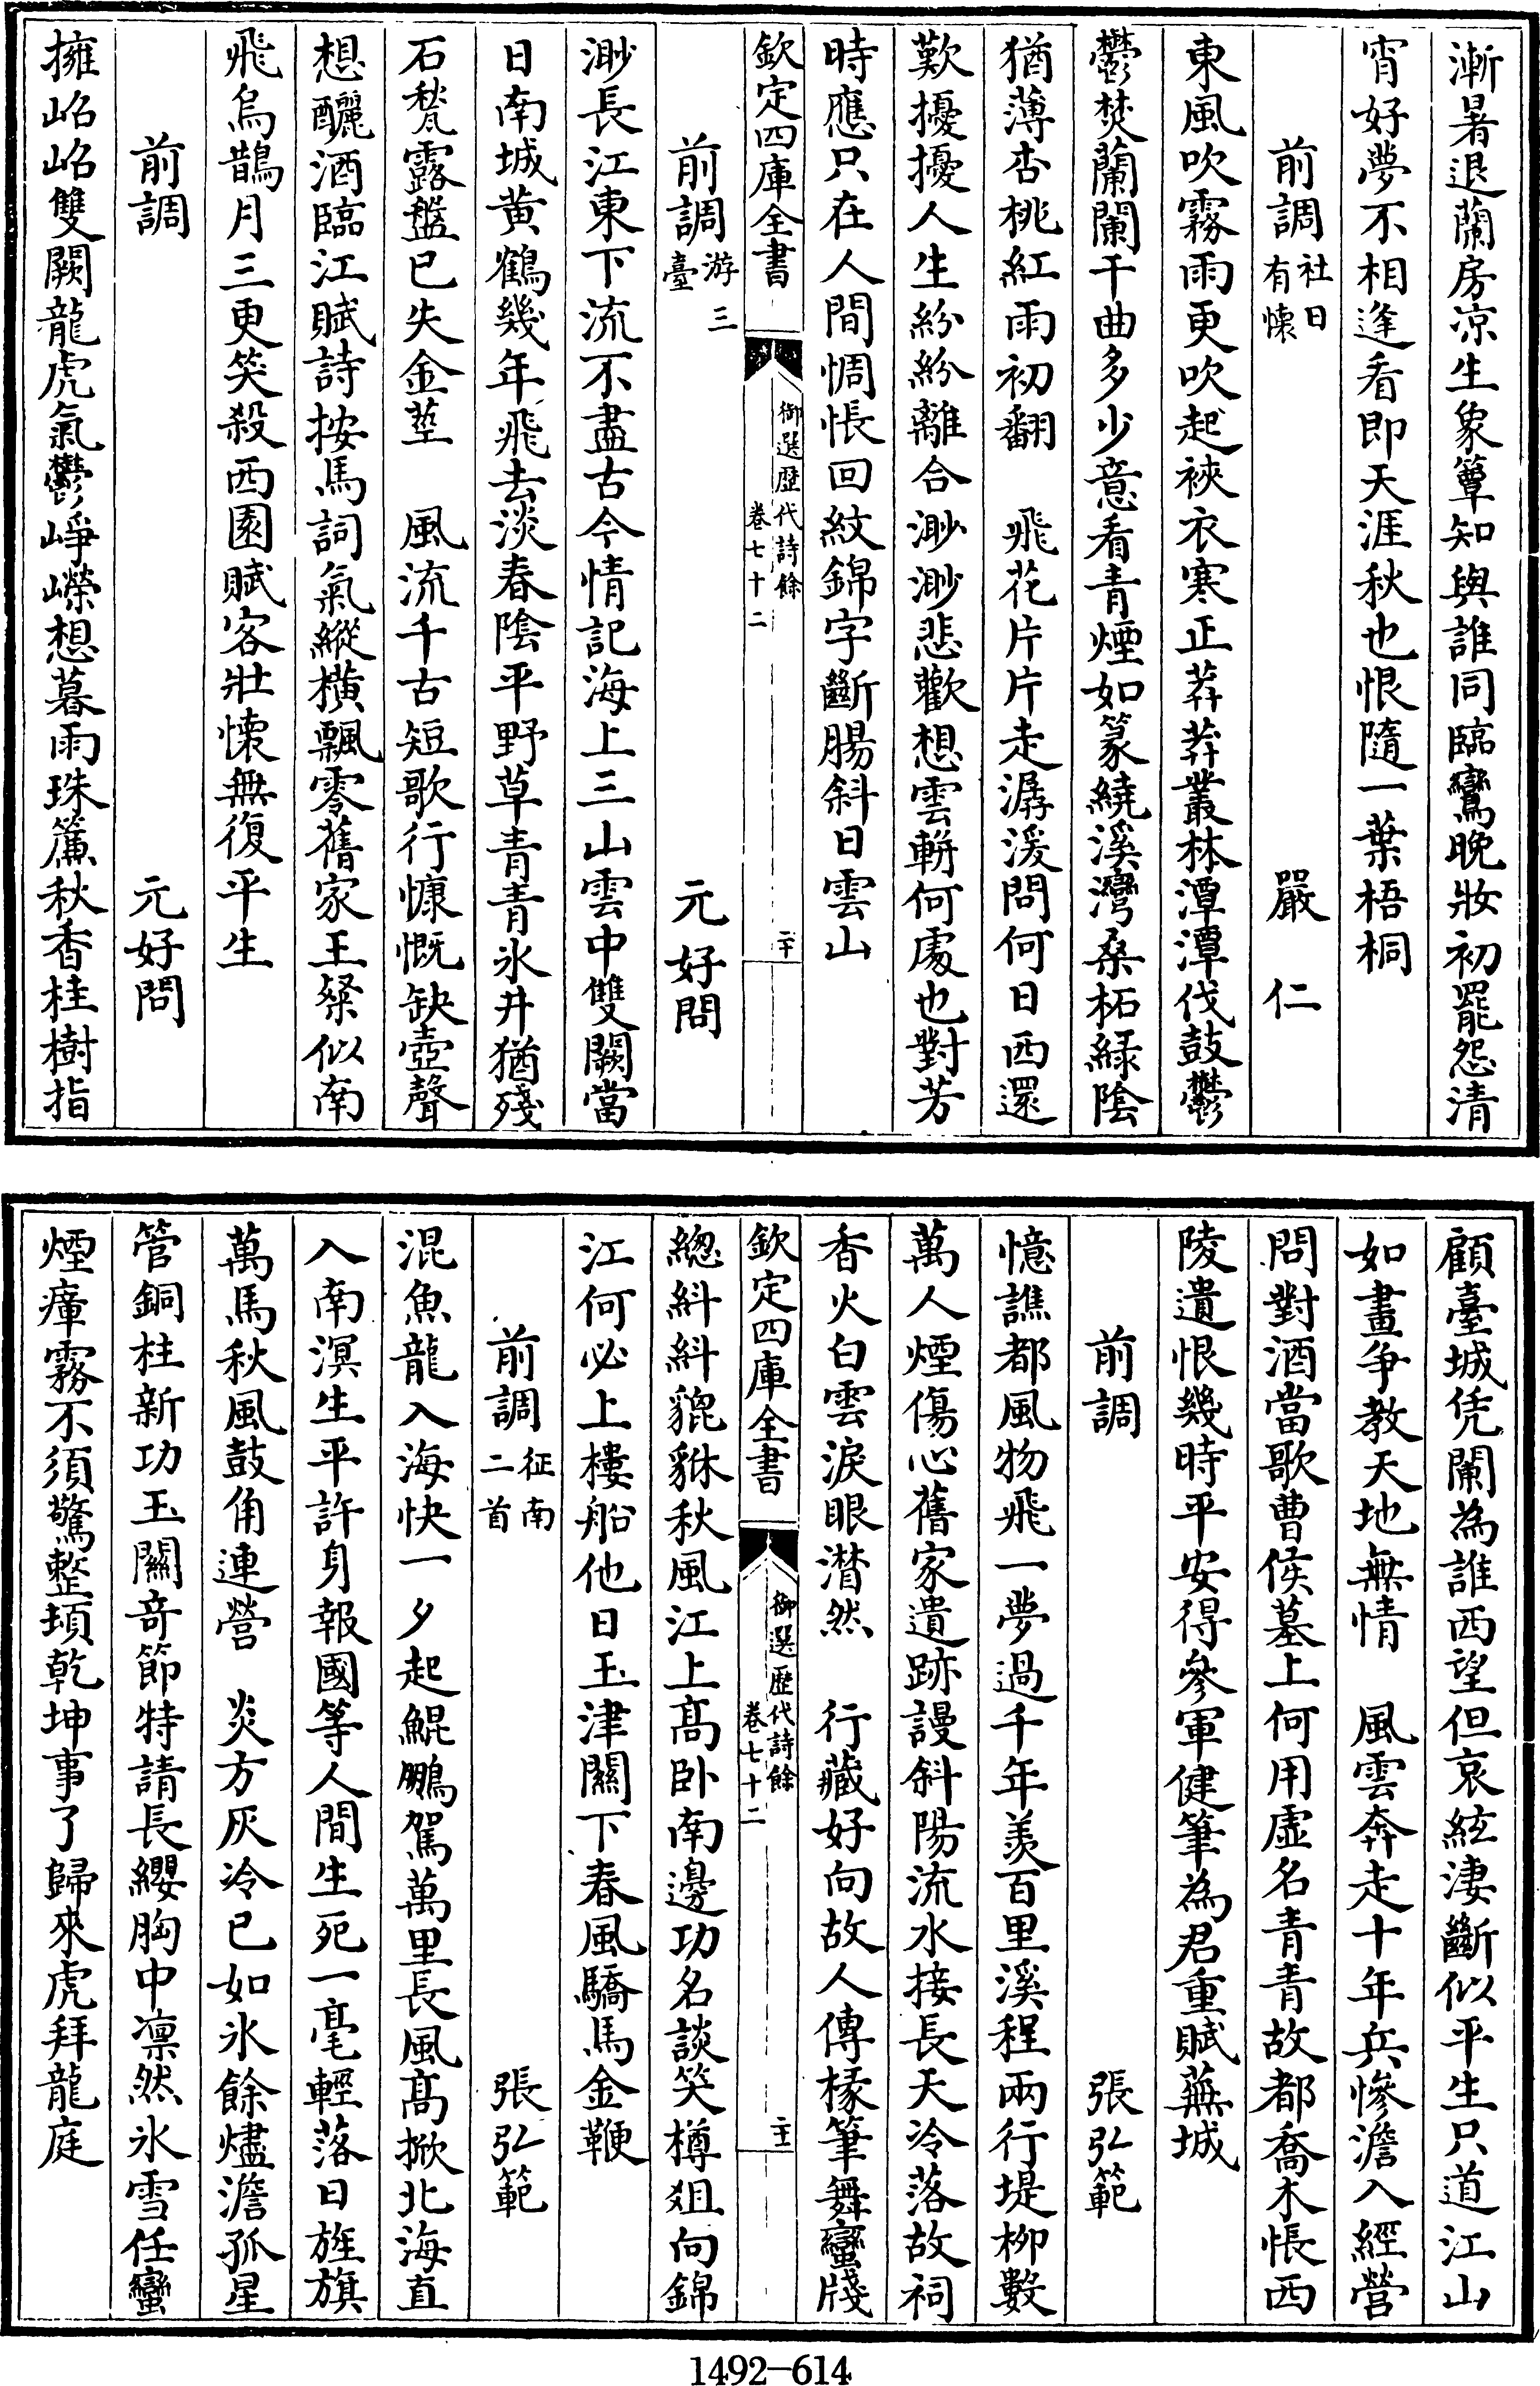 漸暑退蘭房凉生象簟知與誰同臨鸞晚妝初罷怨清
宵好夢不相逢看即天涯秋也恨隨一葉梧桐
前調社日有懷 嚴仁
東風吹霧雨更吹起裌衣寒正莽莽叢林潭潭伐鼓鬱
鬱焚蘭闌干曲多少意看青煙如篆繞溪灣桑柘緑陰
猶薄杏桃紅雨初翻 飛花片片走潺湲問何日西還
歎擾擾人生紛紛離合渺渺悲歡想雲軿何處也對芳
時應只在人間惆悵回紋錦字斷腸斜日雲山
欽定四庫全書 御選歷代詩餘卷七十二 二十
前調游三臺 元好問
渺長江東下流不盡古今情記海上三山雲中雙闕當
日南城黄鶴幾年飛去淡春陰平野草青青氷井猶殘
石甃露盤已失金莖 風流千古短歌行慷慨缺壺聲
想釃酒臨江賦詩按馬詞氣縱横飄零舊家王粲似南
飛烏鵲月三更笑殺西園賦客壯懷無復平生
前調 元好問
擁岹岹雙闕龍虎氣鬱崢嶸想暮雨珠簾秋香桂樹指
顧臺城凭闌為誰西望但哀絃淒斷似平生只道江山
如畫争教天地無情 風雲奔走十年兵慘澹入經營
問對酒當歌曹侯墓上何用虛名青青故都喬木悵西
陵遺恨幾時平安得參軍健筆為君重賦蕪城
前調 張弘範
憶譙都風物飛一夢過千年羨百里溪程兩行堤柳數
萬人煙傷心舊家遺跡謾斜陽流水接長天冷落故祠
香火白雲淚眼潸然 行藏好向故人傳椽筆舞蠻牋
欽定四庫全書 御選歷代詩餘卷七十二 二十一
緫糾糾貔貅秋風江上高卧南邊功名談笑樽俎向錦
江何必上樓船他日玉津關下春風驕馬金鞭
前調征南二首 張弘範
混魚龍入海快一夕起鯤鵬駕萬里長風高掀北海直
入南溟生平許身報國等人間生死一毫輕落日旌旗
萬馬秋風鼓角連營 炎方灰冷已如氷餘燼澹孤星
管銅柱新功玉關竒節特請長纓胸中凛然氷雪任蠻
煙瘴霧不須驚整頓乾坤事了歸來虎拜龍庭
1492-614